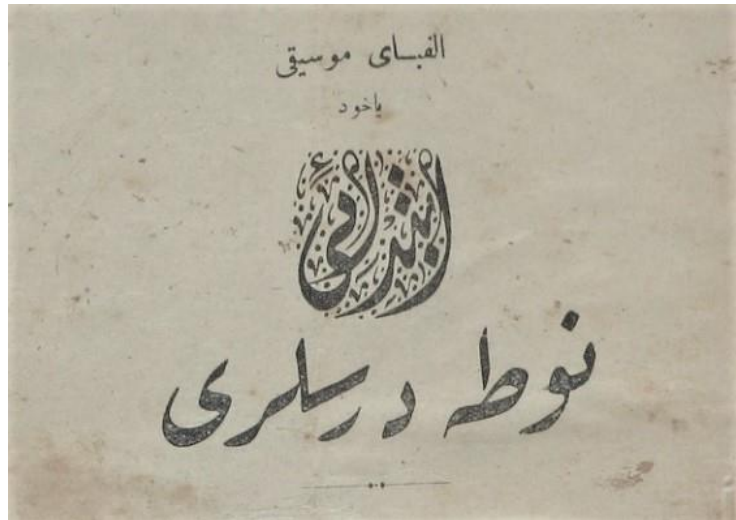 الفبـای موسیقی
یاخود
ابتدائی
نوطه درسلری